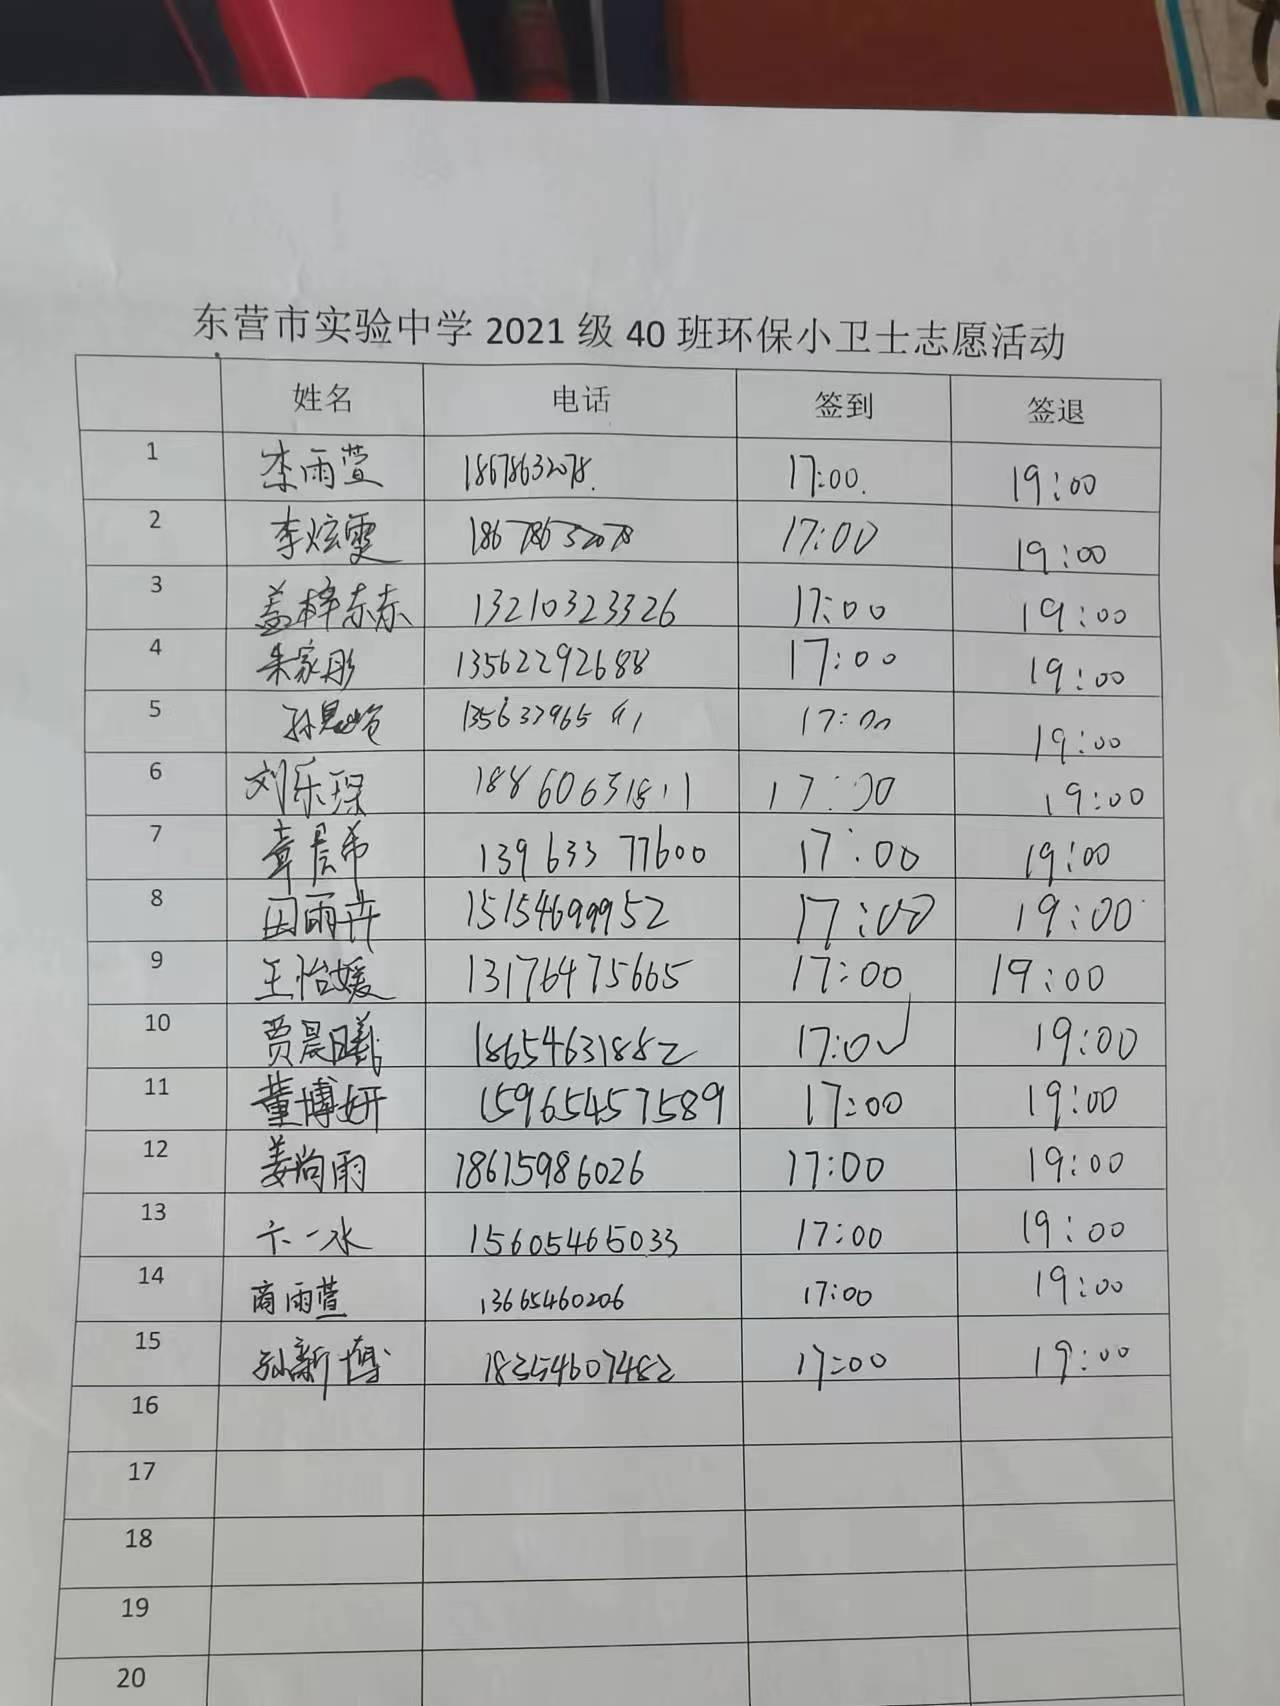 东营市实验中学 2021 级 40 班环保小卫士志愿活动
姓名 电话 签到 签退
1 李雨萱 18678632078. 17:00. 19:00
2 李炫雯 18678632078 17:00 19:00
3 盖梓东东 13210323326 17:00 19:00
4 朱家彤 13562292688 17:00 19:00
5 17:00 19:00
6 刘乐琛 18860631811 17:00 19:00
7 章晨希 13963377600 17:00 19:00
8 田雨卉 15154699952 17:00 19:00
9 王怡媛 13176475665 17:00 19:00
10 贾晨曦 18654631882 17:00 19:00
11 董博妍 15965457589 17:00 19:00
12 姜尚雨 18615986026 17:00 19:00
13 卞一水 15605465033 17:00 19:00
14 商雨萱 13665460206 17:00 19:00
15 孙新博 18254607482 17:00 19:00
16
17
18
19
20